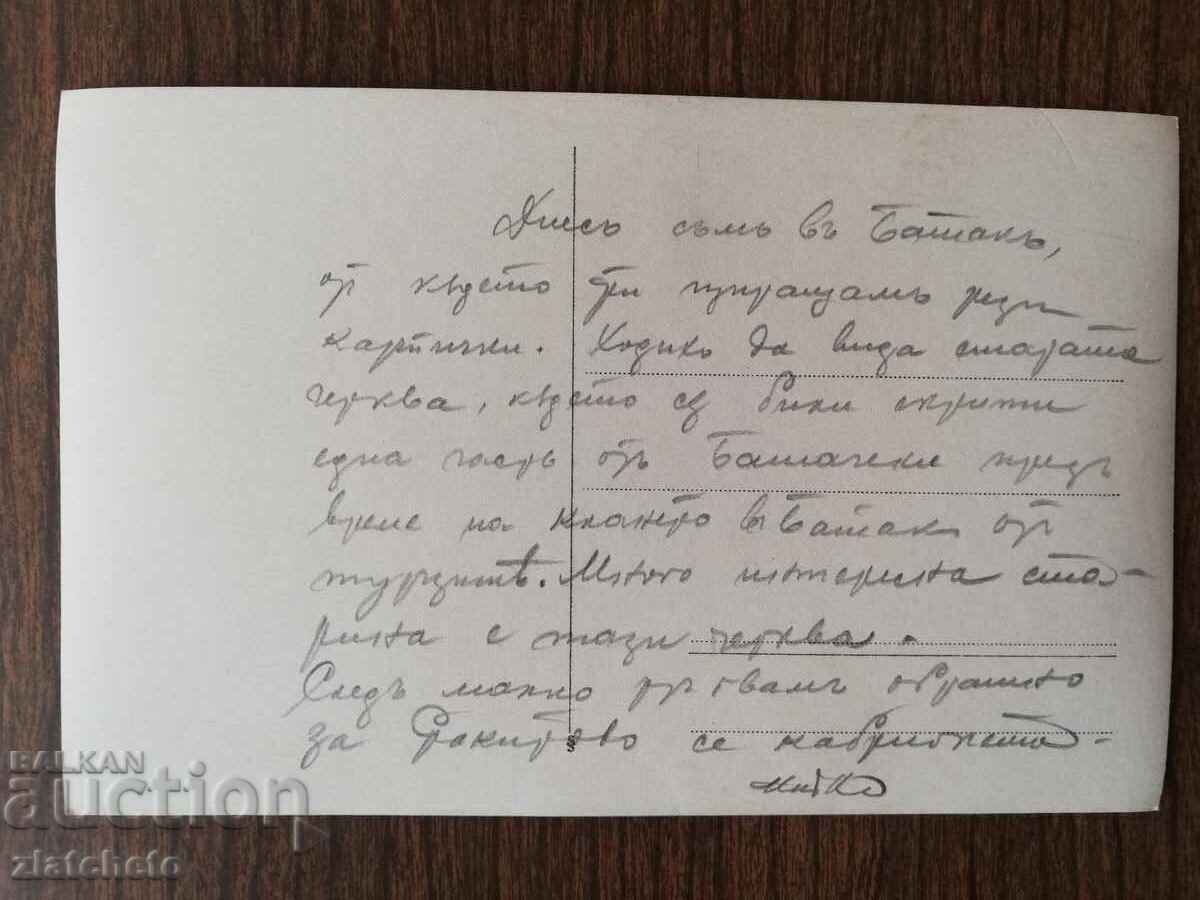 Днесъ съмъ въ Батакъ,
от където ти изпращамъ тези
картички. Ходихъ да видя старата
черква, където са били скрити
една часть отъ Батачени презъ
време на клането въ Батак отъ
турцитѣ. Много интересна ста-
рина е тази черква.
Следъ малко тръгвамъ обратно
за Ракитово се кабриолета -
Митко
BALKAN
auction
zlatcheto